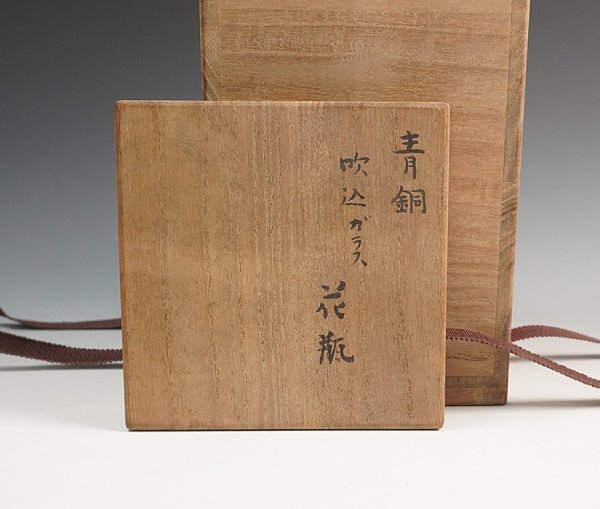 青銅
吹込ガラス
花瓶